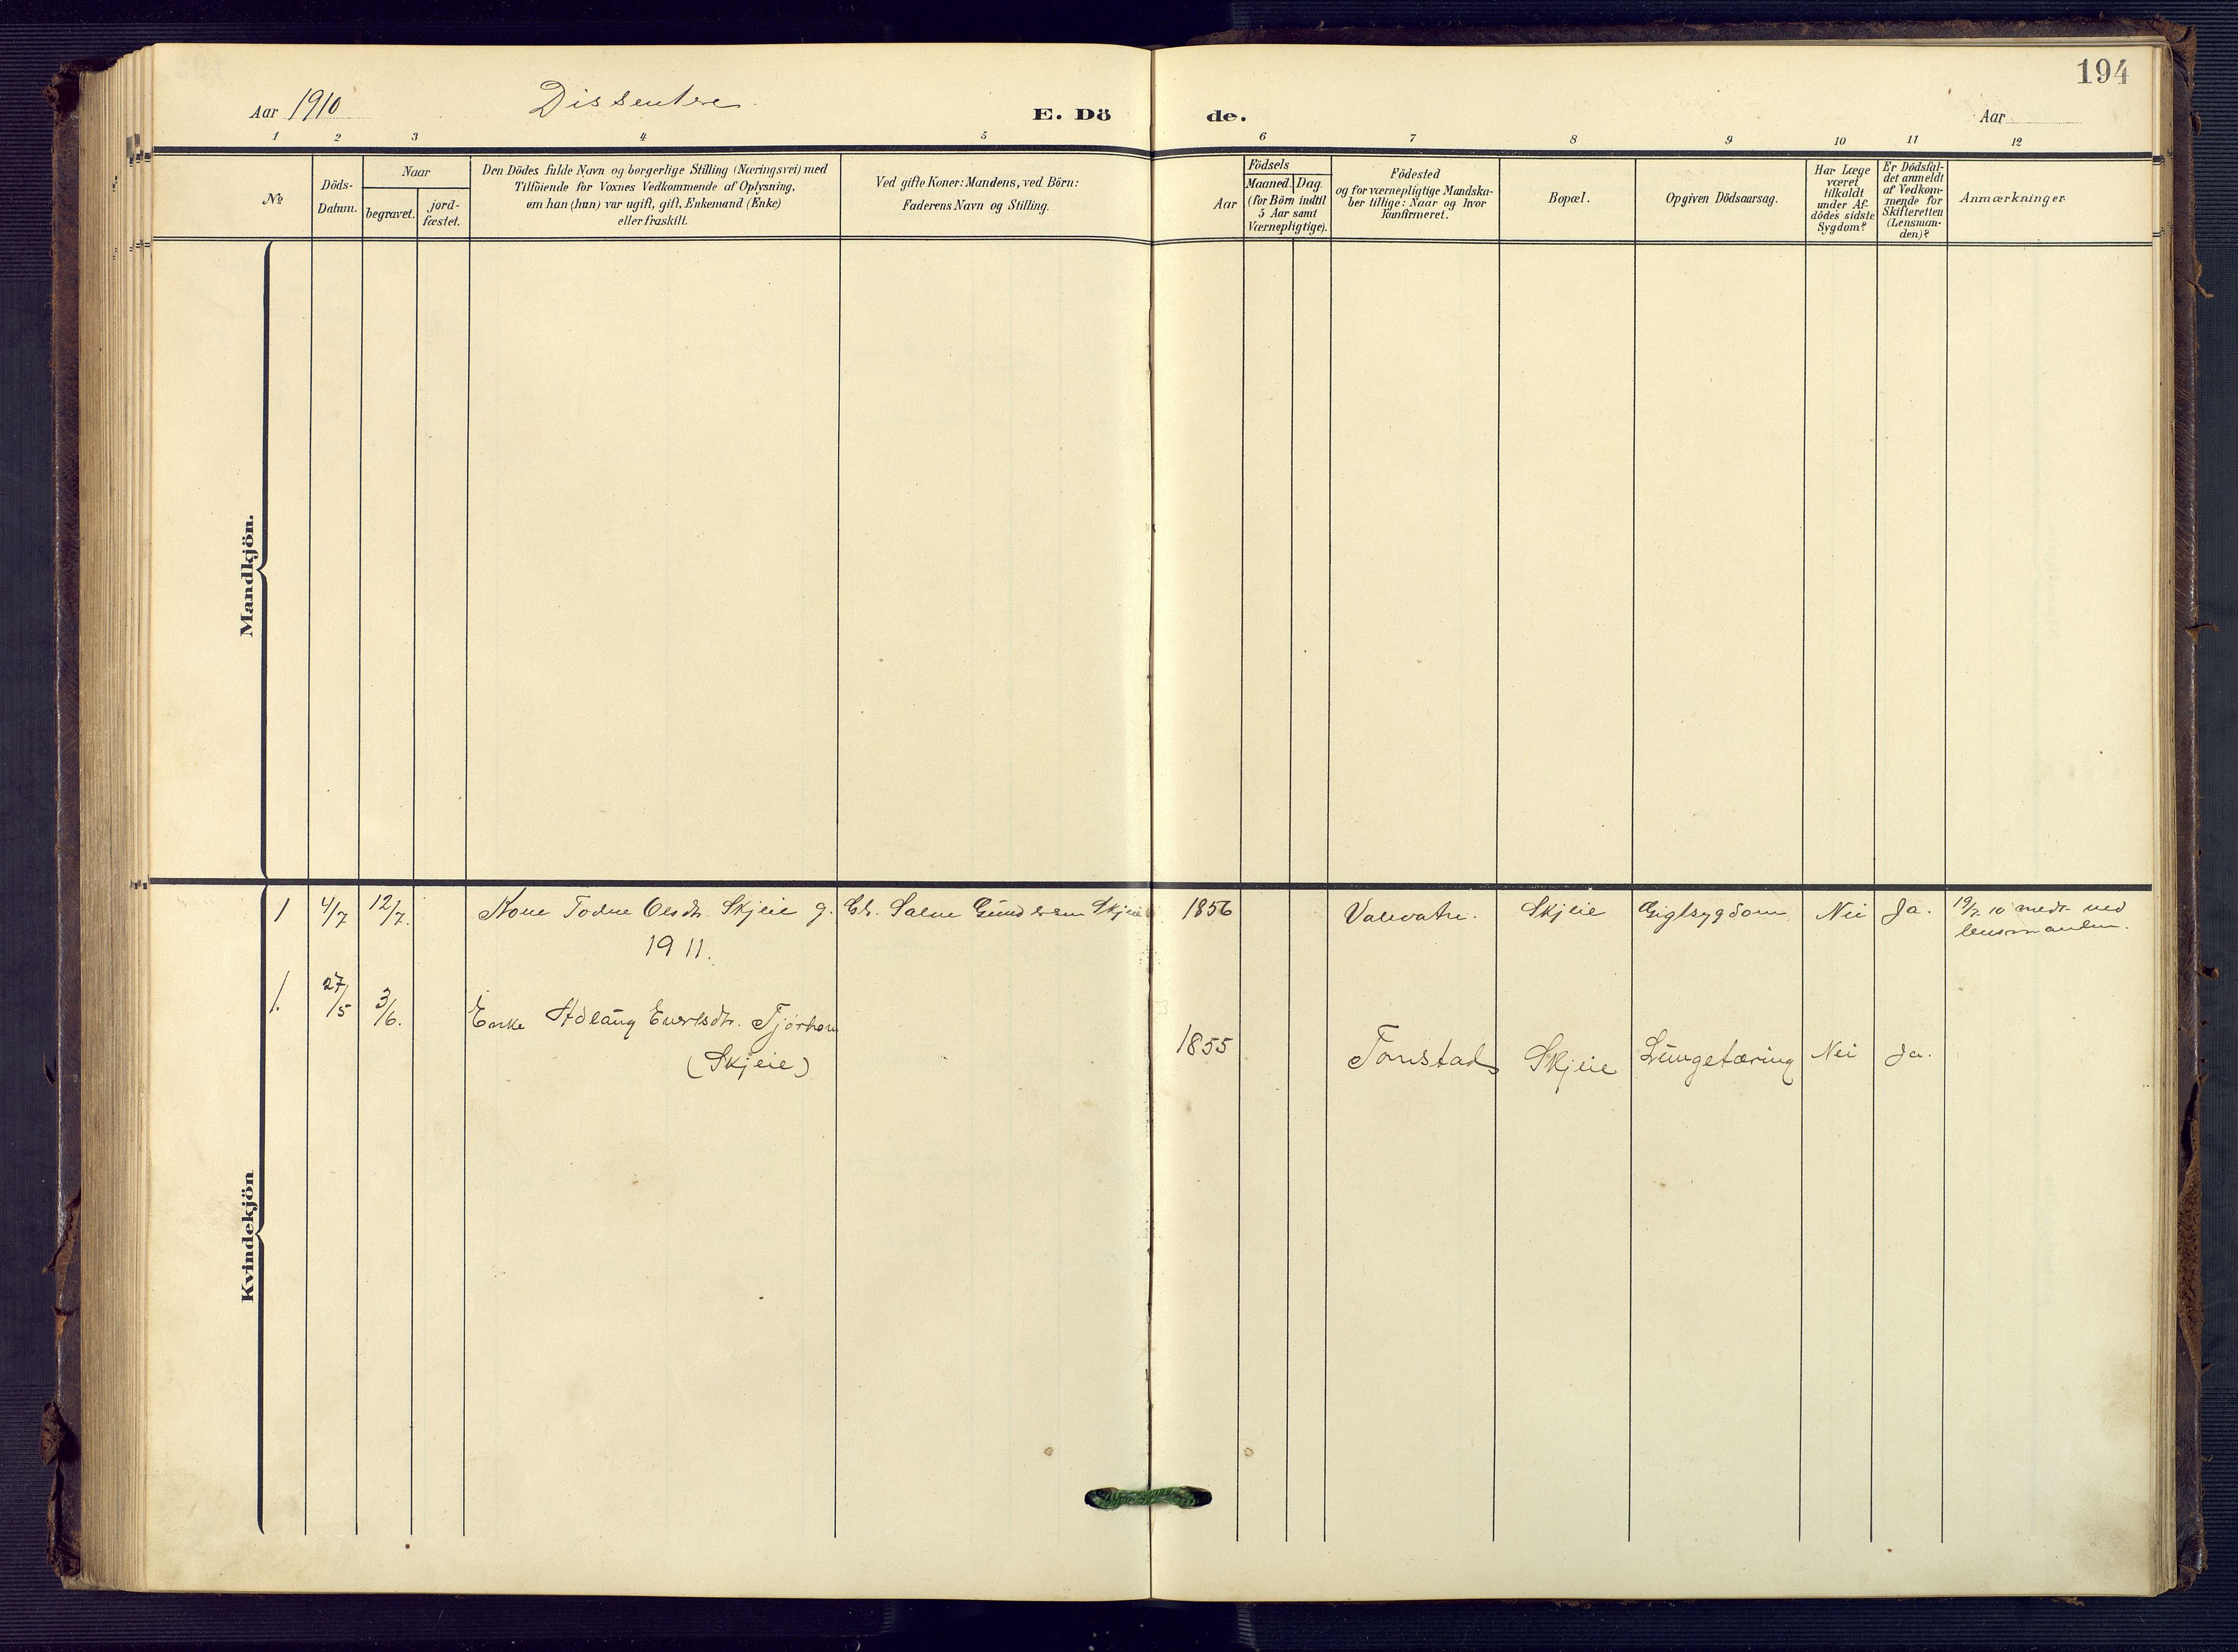 194
Aar 1910 Dissentere E. Dö de. Aar
1 2 3 4 5 6 7 8 9 10 11 12
No
Döds-
Datum.
Naar
begravet.
jord-
fæstet.
Den Dödes fulde Navn og borgerlige Stilling (Næringsvei) med
Tilföiende for Voxnes Vedkommende af Oplysning,
om han (hun) var ugift, gift, Enkemand (Enke)
eller fraskilt.
Ved gifte Koner: Mandens, ved Börn:
Faderens Navn og Stilling.
Aar
Födsels
Maaned. Dag.
(for Börn indtil
5 Aar samt
Værnepligtige).
Födested
og for værnepligtige Mandska-
ber tillige: Naar og hvor
konfirmeret.
Bopæl.
Opgiven Dödsaarsag.
Har Læge
været
tilkaldt
under Af-
dödes sidste
Sygdom?
Er Dödsfal-
det anmeldt
af Vedkom-
mende for
Skifteretten
(Lensman-
den)?
Anmærkninger.
Mandkjön.
Kvindekjön
1 4/7 12/7. Kone Todne Olsdtr. Skjeie g. Salve Gundersen Skjeie 1856 Valevatn. Skjeie Gigtsygdom Nei Ja. 19/7 10 medt. ved
lensmanden.
1911.
1. 27/5 3/6. Enke Ådlaug Evertsdtr. Tjørhom
(Skjeie) 1855 Tonstad Skjeie Lungetæring Nei Ja.